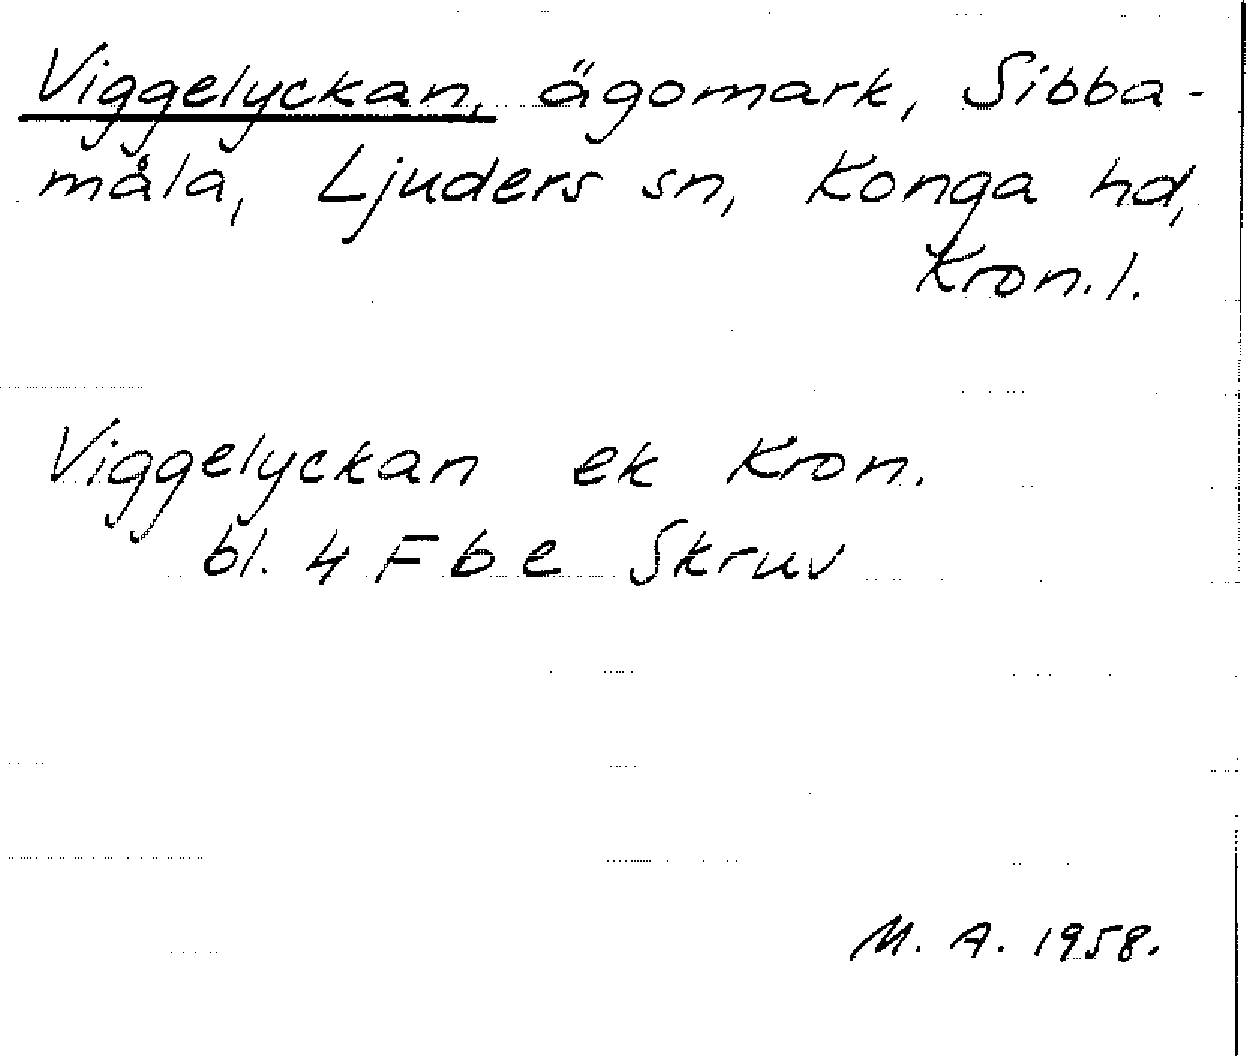 Viggelyckan, ägomark, Sibba-
måla, Ljuders sn, Konga hd,
Kron. l.
Viggelyckan ek Kron.
bl. 4 F b e Skruv
M. A. 1958.